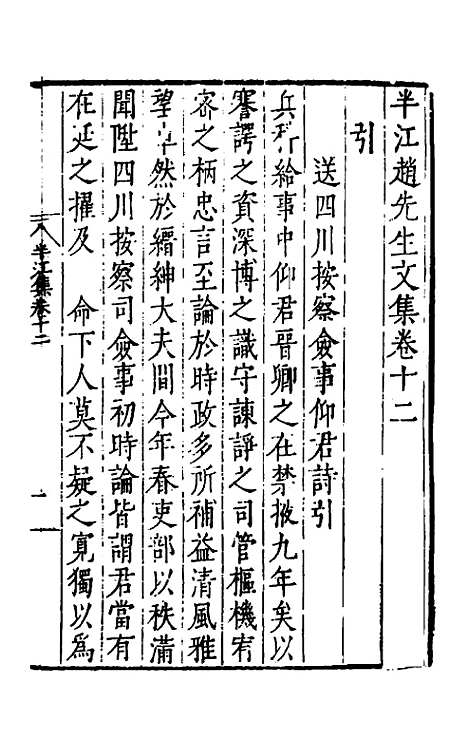 半江趙先生文集卷十二
引
送四川按察僉事仰君詩引
兵科給事中仰君晉卿之在禁掖九年矣以
謇諤之資深博之識守諫諍之司管樞機宥
密之柄忠言至論於時政多所補益清風雅
望卓然於縉紳大夫間今年春吏部以秩滿
聞陞四川按察司僉事初時論皆謂君當有
在廷之擢及　命下人莫不疑之寬獨以為
半江集卷十二
一